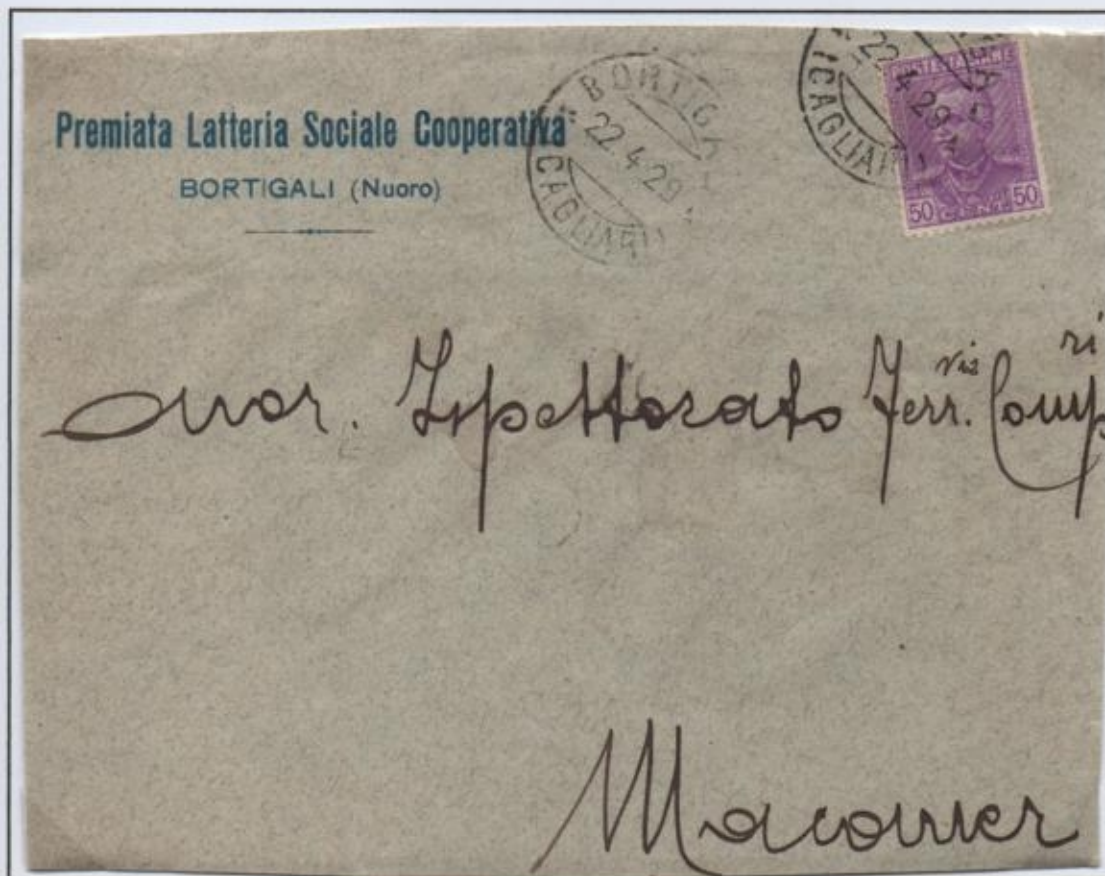 Premiata Latteria Sociale Cooperativa
BORTIGALI (Nuoro)
BORTIGA
22.4.29
(CAGLIARI)
22.4.29
(CAGLIARI
POSTE ITALIANE
50 CENT 50
Onor. Ispettorato Ferr.vis Comp ri
Macomer